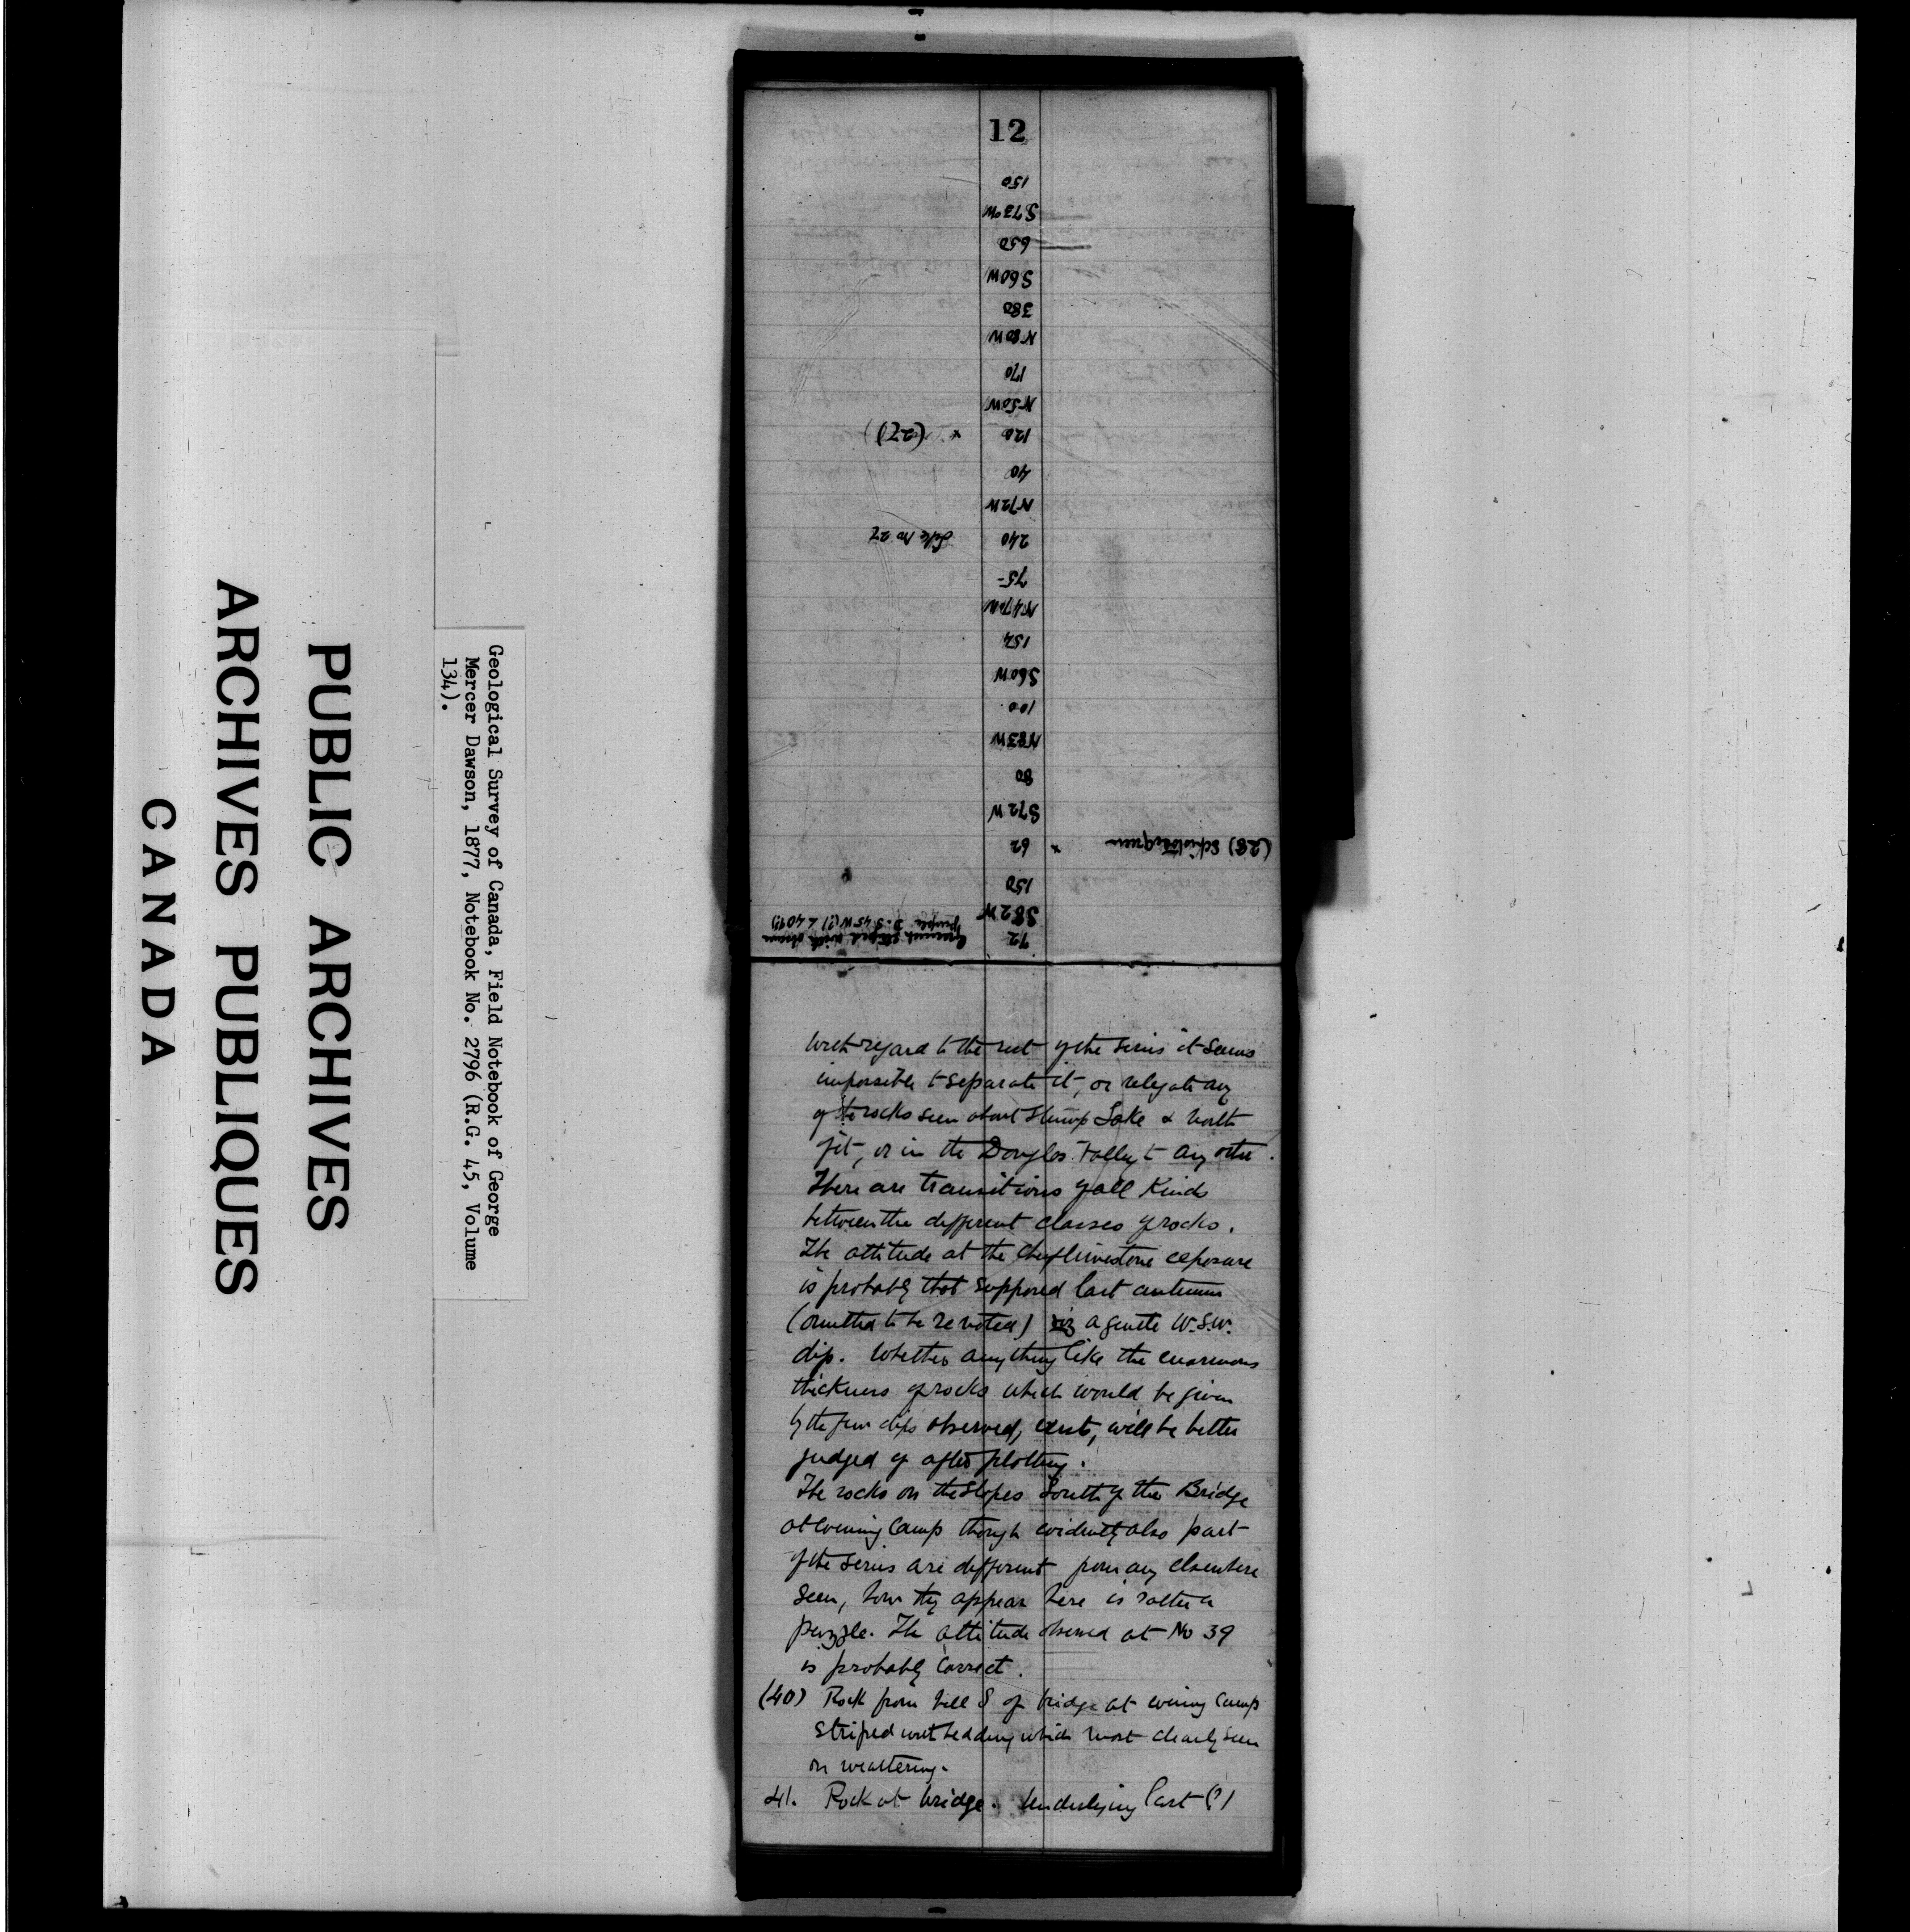 PUBLIC ARCHIVES
ARCHIVES PUBLIQUES
CANADA
Geological Survey of Canada, Field Notebook of George
Mercer Dawson, 1877, Notebook No. 2796 (R.G. 45, Volume
134).
12
150
S73°W
650
S60W
380
N80W
170
N50W
120 x (27)
40
N72W
240 Like No 27
75
N47W
154
S60W
100
N83W
80
S72W
(28) x 62
150
S82W
72
purple. D. S. 45 W (?) ∠ 40°(?)
With regard to the rest of the series it seems
impossible to separate it, or relegate any
of the rocks seen about Stump Lake & north
of it, or in the Douglas Valley to any other.
There are transitions of all kinds
between the different classes of rocks.
The attitude at the chief limestone exposure
is probably that supposed last autumn
(omitted to be re noted) viz a gentle W.S.W.
dip. Whether anything like the enormous
thickness of rocks which would be given
by the few dips observed, exists, will be better
judged of after plotting.
The rocks on the slopes South of the Bridge
at evening Camp though evidently also part
of the series are different from any elsewhere
seen, how they appear here is rather a
puzzle. The attitude observed at No 39
is probably correct.
(40) Rock from hill S of bridge at evening Camp
striped with bedding which most clearly seen
on weathering.
41. Rock at bridge. Underlying last (?)